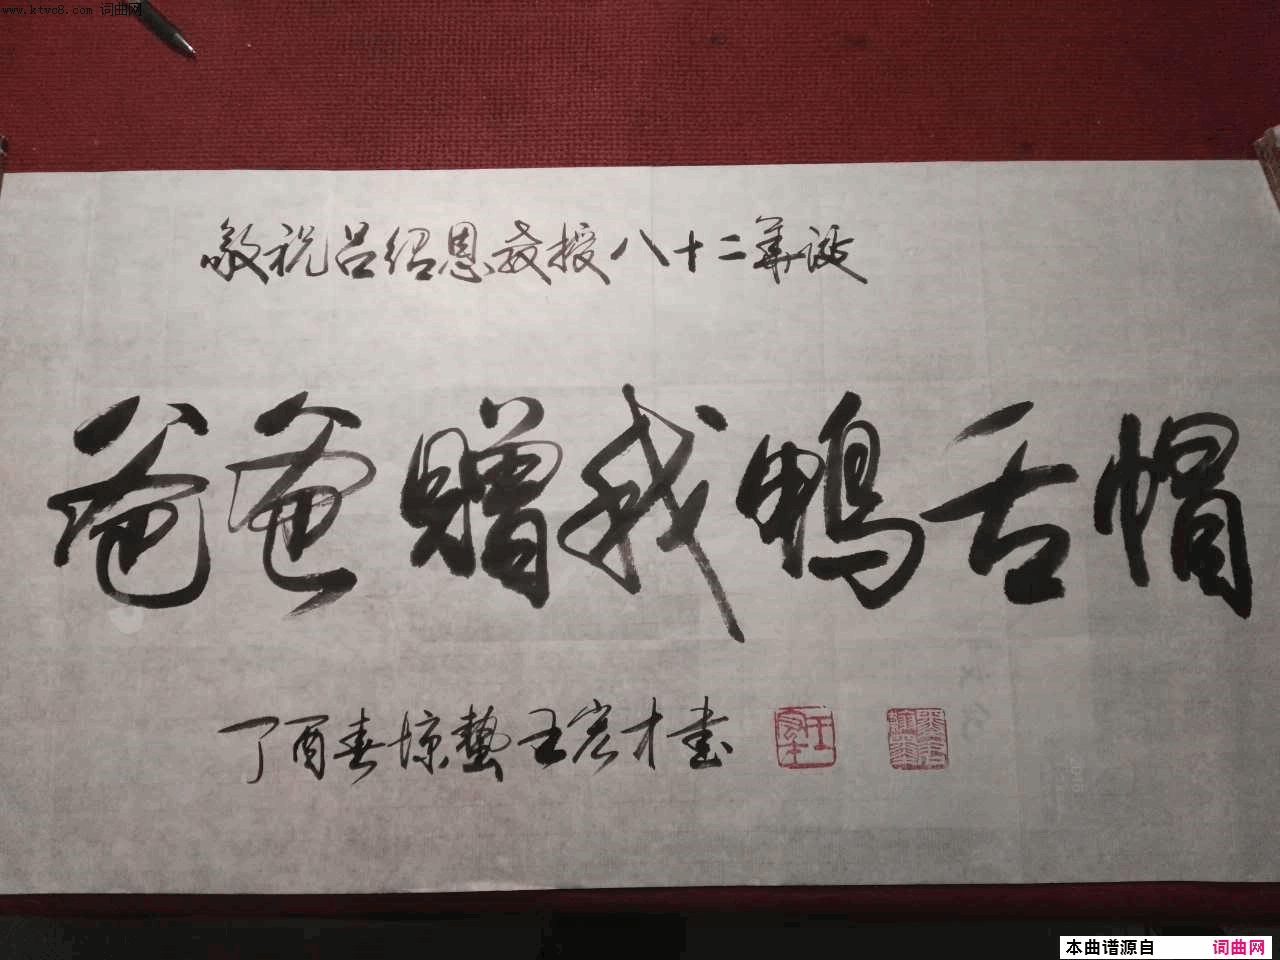 www.ktvc8.com 词曲网
敬祝吕绍恩教授八十二华诞
爸爸赠我鸭舌帽
丁酉春 王宏才书
本曲谱源自 词曲网